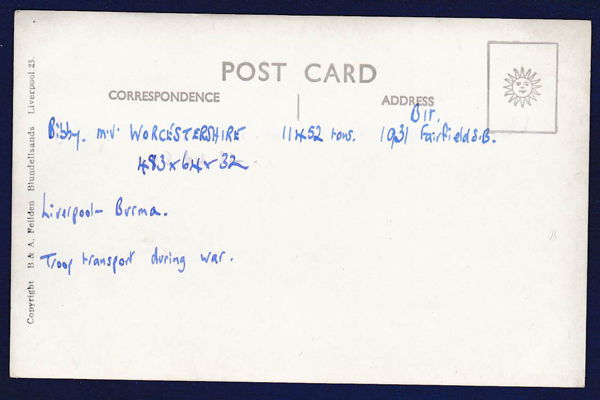 POST CARD
CORRESPONDENCE
ADDRESS
Bir.
Bibby. m.v. WORCESTERSHIRE 11452 tons. 1931 Fairfield S.B.
483 x 64 x 32
Liverpool - Burma.
Troop transport during war.
Copyright B & A. Feilden Blundellsands Liverpool.23.